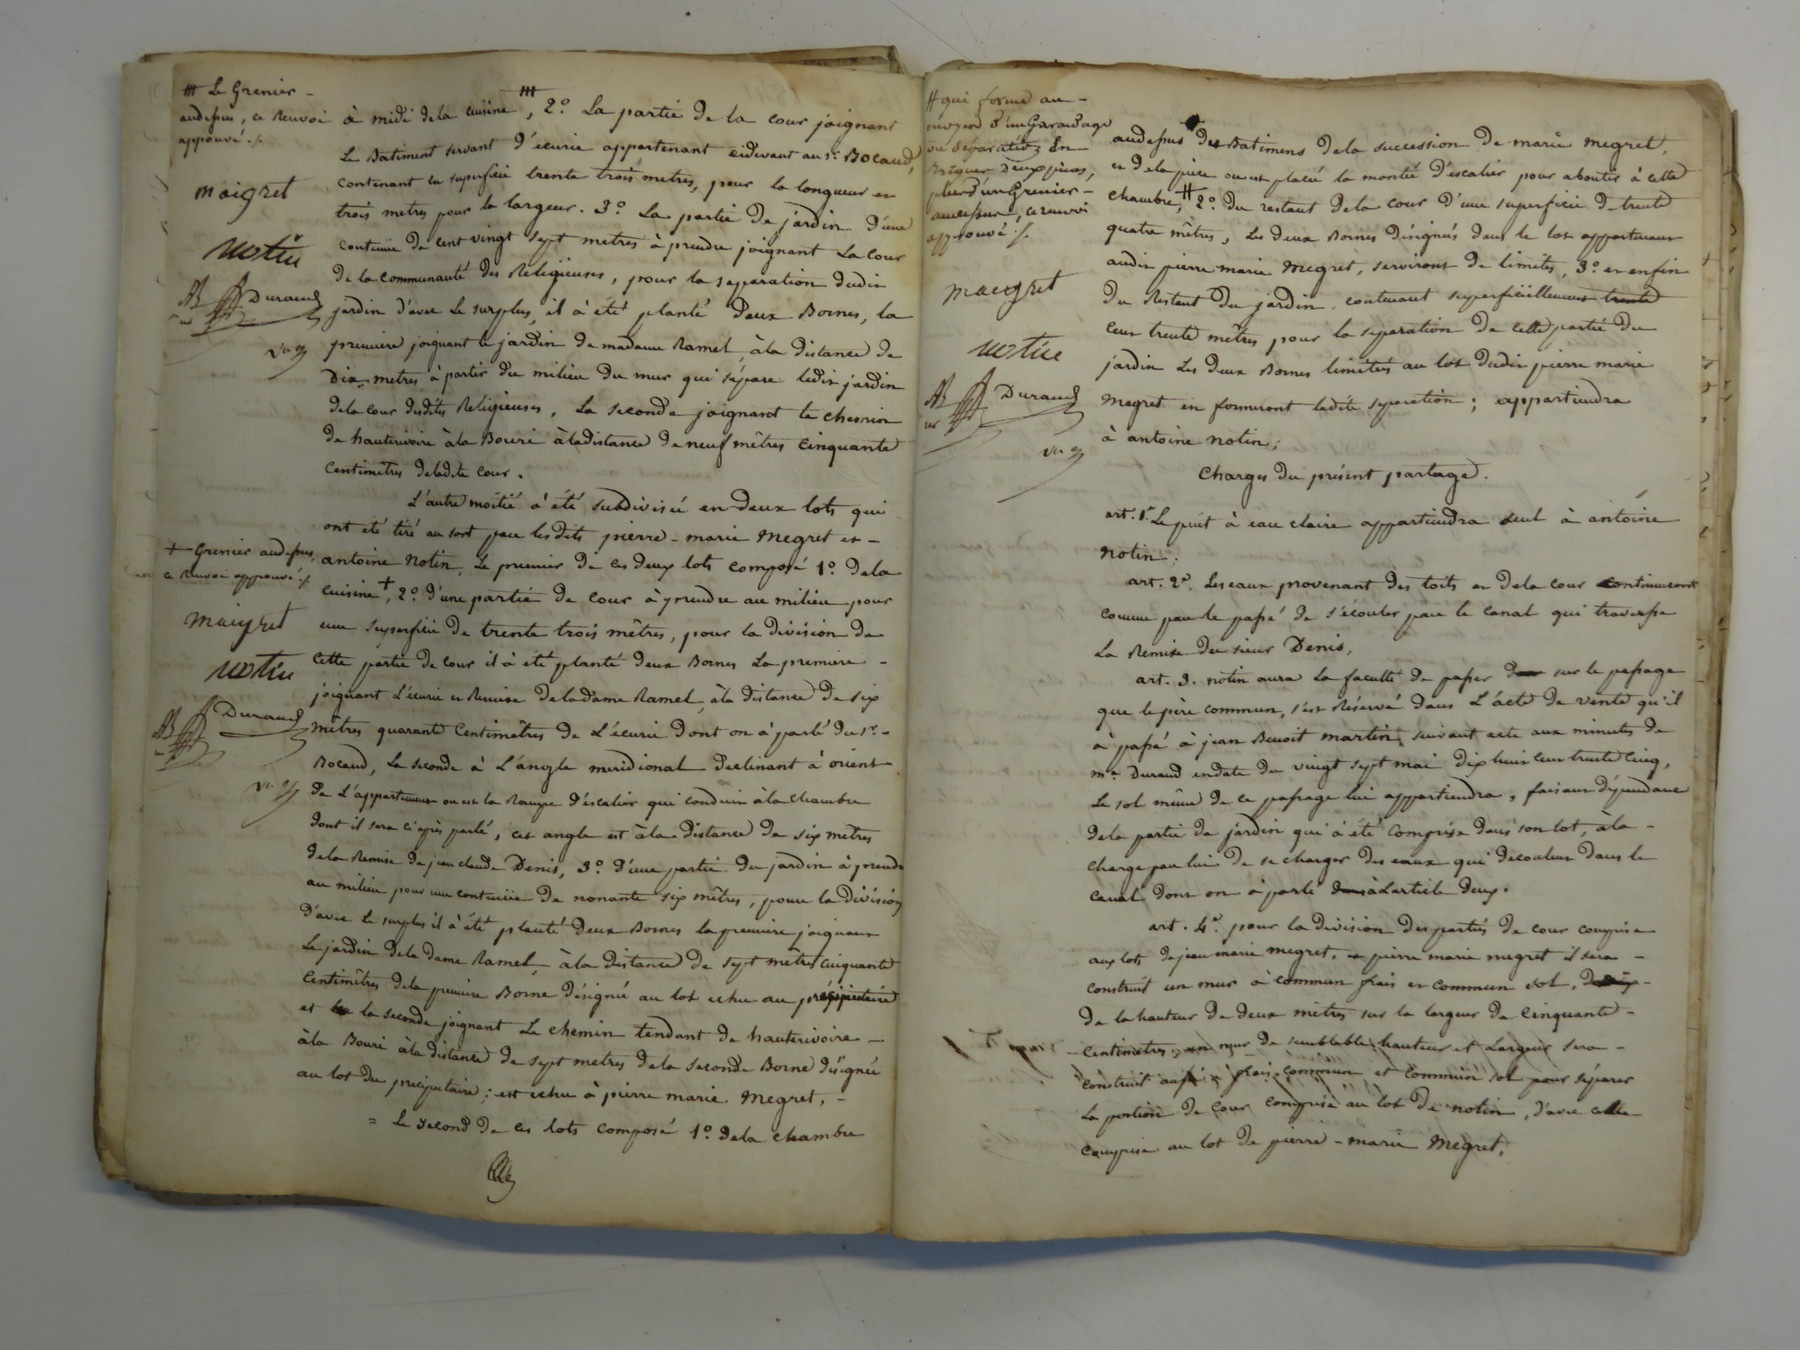 ₶ Le Grenier
audessus, ce Renvoi
approuvé ./.
maigret
notin
Durand
à midi dela cuisine ₶, 2.° La partie de la cour joignant
Le Batiment servant d'écurie appartenant cidevant au s.r Bocaud,
contenant en superficie trente trois metres, pour la longueur et
trois metres pour la largeur. 3.° La partie de jardin d'une
contenue de cent vingt sept metres à prendre joignant La cour
de la communauté des Religieuses, pour la separation dudit
jardin d'avec Le surplus, il à été planté deux Bornes, la
premiere joignant le jardin de madame Ramel, àla distance de
Dix metres à partir du milieu du mur qui sépare ledit jardin
dela cour desdites Religieuses, La seconde joignant le chemin
de hauterivoire àla Bouri àladistance de neuf mêtres cinquante
Centimêtres deladite cour.
L'autre moitié à été subdivisée en deux lots qui
ont été tiré au sort par lesdits pierre-marie Megret et-
antoine Notin, Le premier de ces deux lots composé 1.° dela
+ Grenier audessus,
ce renvoi approuvé ./.
maigret
notin
Durand
cuisine +, 2.° d'une partie de cour à prendre au milieu pour
une superficie de trente trois mêtres, pour la division de
Cette partie de cour il à été planté deux Bornes La premiere -
joignant L'écurie et Remise deladame Ramel, àla distance de six
mêtres quarante Centimêtres de L'écurie dont on à parlé du s.r -
Bocaud, La seconde à L'angle meridional declinant à orient
de L'appartement ou est la Rampe d'escalier qui conduit àla chambre
dont il sera ci après parlé, cet angle est àla distance de six mêtres
dela Remise de jean claude Denis, 3.° d'une partie du jardin à prendre
au milieu pour une contenue de nonante six mêtres, pour la division
d'avec le surplus il à été planté deux Bornes la premiere joignant
Le jardin dela Dame Ramel, àla distance de sept mêtres cinquante
Centimêtres dela premiere Borne désignée au lot echu au précipuitaire
et la seconde joignant Le chemin tendant de hauterivoire -
àla Bouri àla distance de sept metres dela seconde Borne désignée
au lot du precipuitaire; est echu à pierre marie Megret, -
= Le second de ces lots composé 1.° dela chambre
# qui forme au -
moyen d'un Garandage
ou séparation En
Briques deux pieces,
plus d'un Grenier -
audessus, ce renvoi
approuvé ./.
maigret
notin
Durand
audessus des Batimens dela succession de marie megret,
et dela piece ou est placé la montée d'escalier pour aboutir à cette
chambre, # 2.° du restant dela cour d'une superficie de trente
quatre mêtres, Les deux Bornes désignés dans le lot appartenant
audit pierre marie Megret, serviront de limites, 3.° et enfin
du Restant du jardin, contenant superficiellement trente
cent trente mêtres pour la séparation de cette partie du
jardin Les deux Bornes limités au lot dudit pierre marie
Megret en formeront ladite séparation; appartiendra
à antoine notin;
Charges du présent partage.
art. 1.r Le puit à eau claire appartiendra seul à antoine
Notin;
art. 2.e Les eaux provenant des toits et dela cour continueront
comme par le passé de s'écouler par le canal qui traverse
La Remise du sieur Denis,
art. 3. notin aura La faculté de passer sur le passage
que le pére commun, s'est Réservé dans L'acte de vente qu'il
à passé à jean Benoit martin, suivant acte aux minutes de
m.e Durand endate du vingt sept mai dix huit cent trente Cinq,
Le sol même de ce passage lui appartiendra, faisant dépendance
dela partie de jardin qui à été comprise dans son lot, àla -
charge par lui de se charger des eaux qui decoulent dans le
canal dont on à parlé à L'article deux.
art. 4.e pour la division des parties de cour comprise
aux lots de jean marie megret, et pierre marie megret il sera -
construit un mur à commun frais et commun sol,
de la hauteur de deux mêtres sur la largeur de cinquante -
Centimetres, un mur de semblable hauteur et Largeur sera -
construit aussi à frais commun et commun sol pour séparer
La portion de cour comprise au lot de notin, d'avec celle
comprise au lot de pierre - marie Megret,